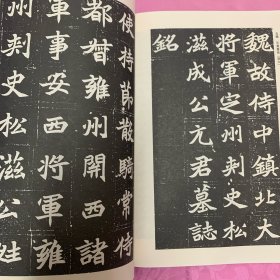 魏故侍中鎮北大
將軍定州刺史松
滋成公元君墓誌
銘
使持節散騎常侍
都督雍州關西諸
軍事安西將軍雍
州刺史松滋公姓